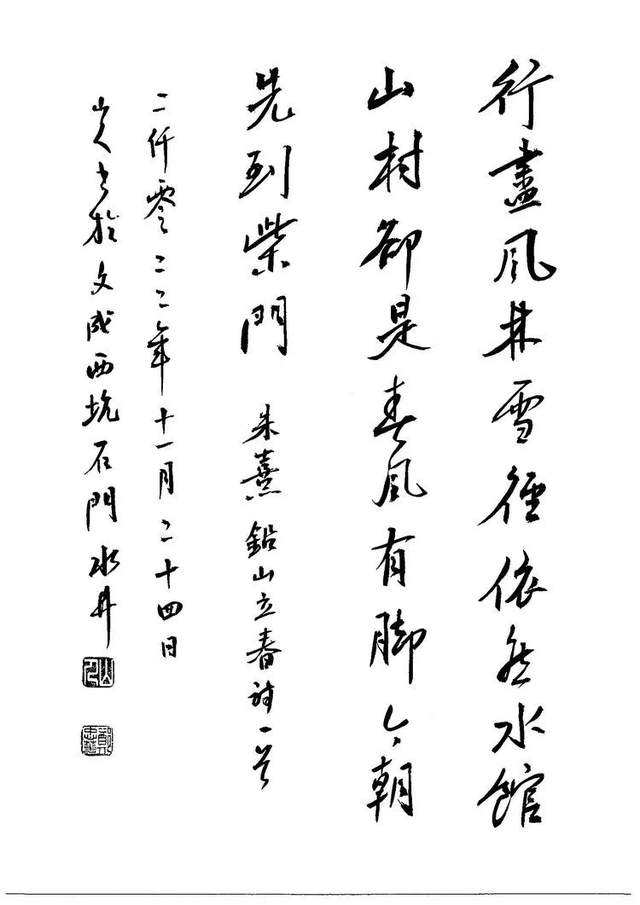 行盡風林雪徑依然水館
山村卻是春風有脚今朝
先到柴門 朱熹鉛山立春詩一首
二仟零二二年十一月二十四日
山人書於文成西坑石門水井